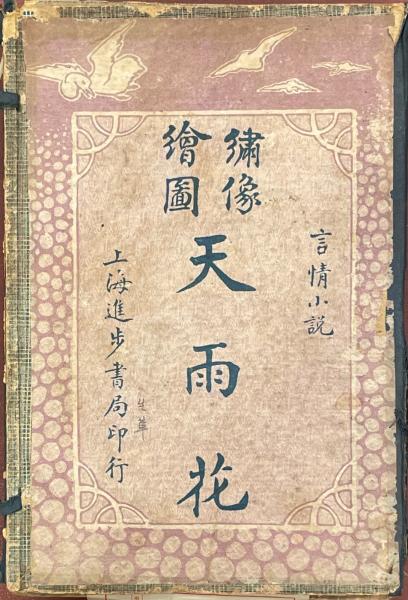 言情小説
繡像
繪圖
天雨花
上海進步書局印行